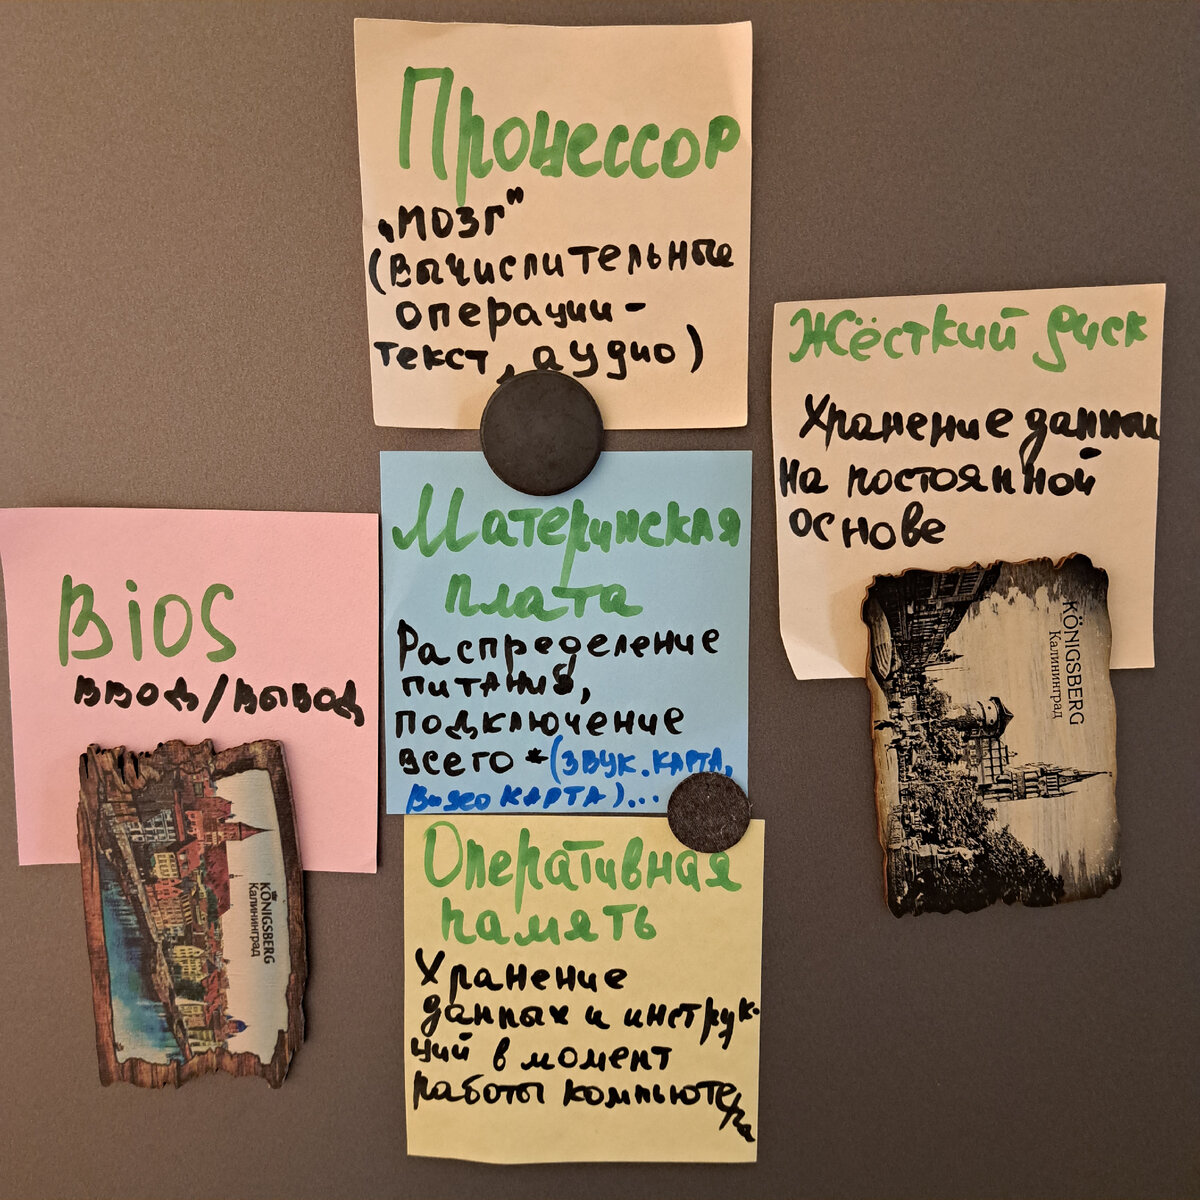 Процессор
„мозг"
(вычислительные
операции-
текст, аудио)
Жёсткий диск
Хранение данных
на постоянной
основе
BiOS
ввод/вывод
Материнская
плата
Распределение
питания,
подключение
всего *(звук.карта,
видео карта)...
Оперативная
память
Хранение
данных и инструк-
ций в момент
работы компьютера
KÖNIGSBERG
Калининград
KÖNIGSBERG
Калининград